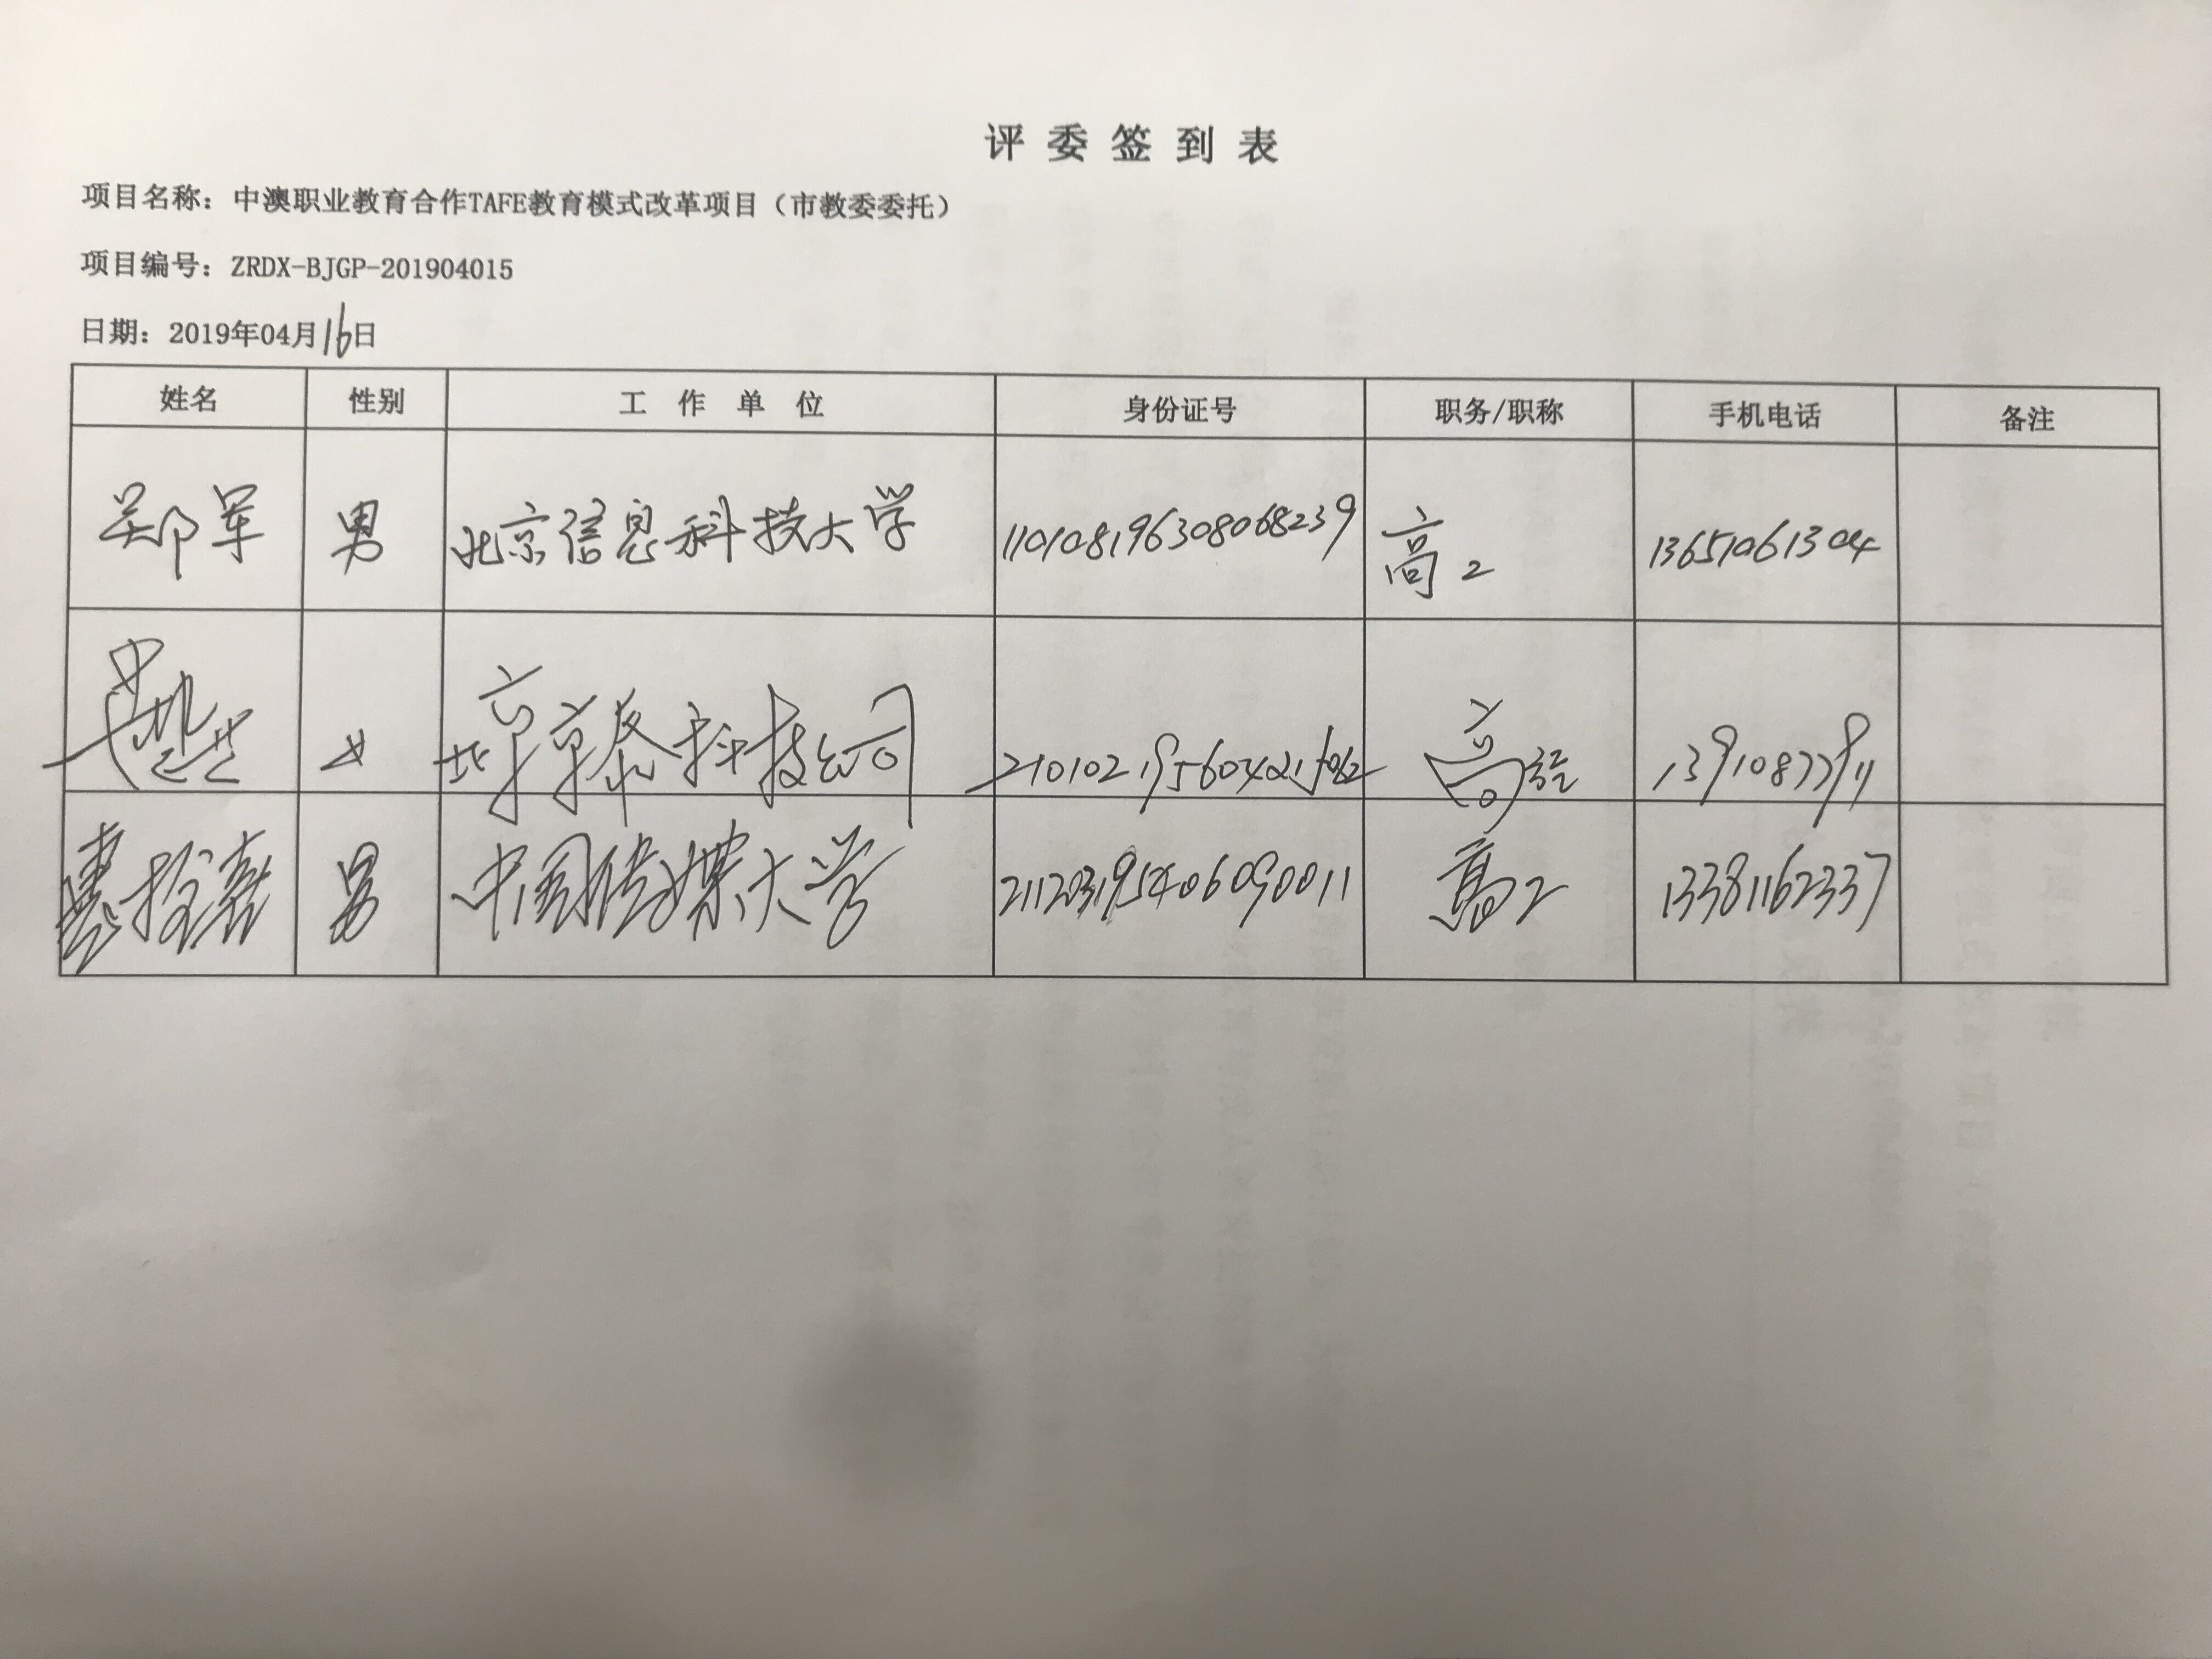 评委签到表
项目名称：中澳职业教育合作TAFE教育模式改革项目（市教委委托）
项目编号：ZRDX-BJGP-201904015
日期：2019年04月16日
姓名 性别 工作单位 身份证号 职务/职称 手机电话 备注
郑军 男 北京信息科技大学 110108196308068239 高工 13651061304
女 北京京泰科技公司 高经 13910877911
男 中国传媒大学 211203195406090011 高工 13381162337